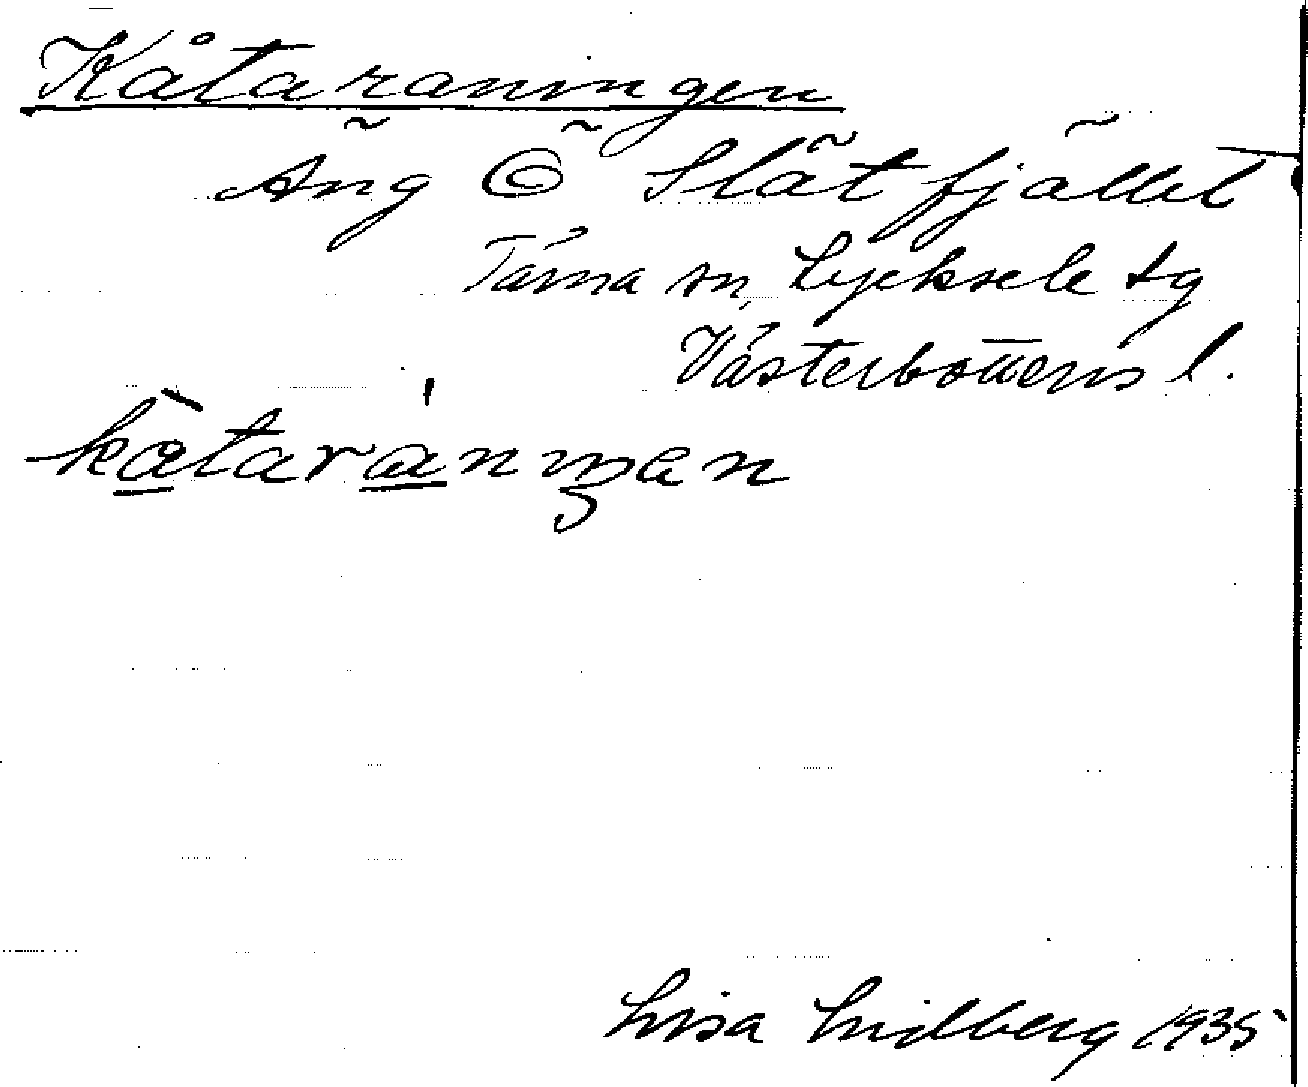 Kåtaraningen
Äng Ö Slätfjället
Tärna sn, Lycksele tg
Västerbottens l.
kåtaránɜen
Lisa Lidberg 1935